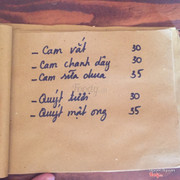 - Cam vắt 30
- Cam chanh dây 30
- Cam sữa chua 35
- Quýt tươi 30
- Quýt mật ong 35